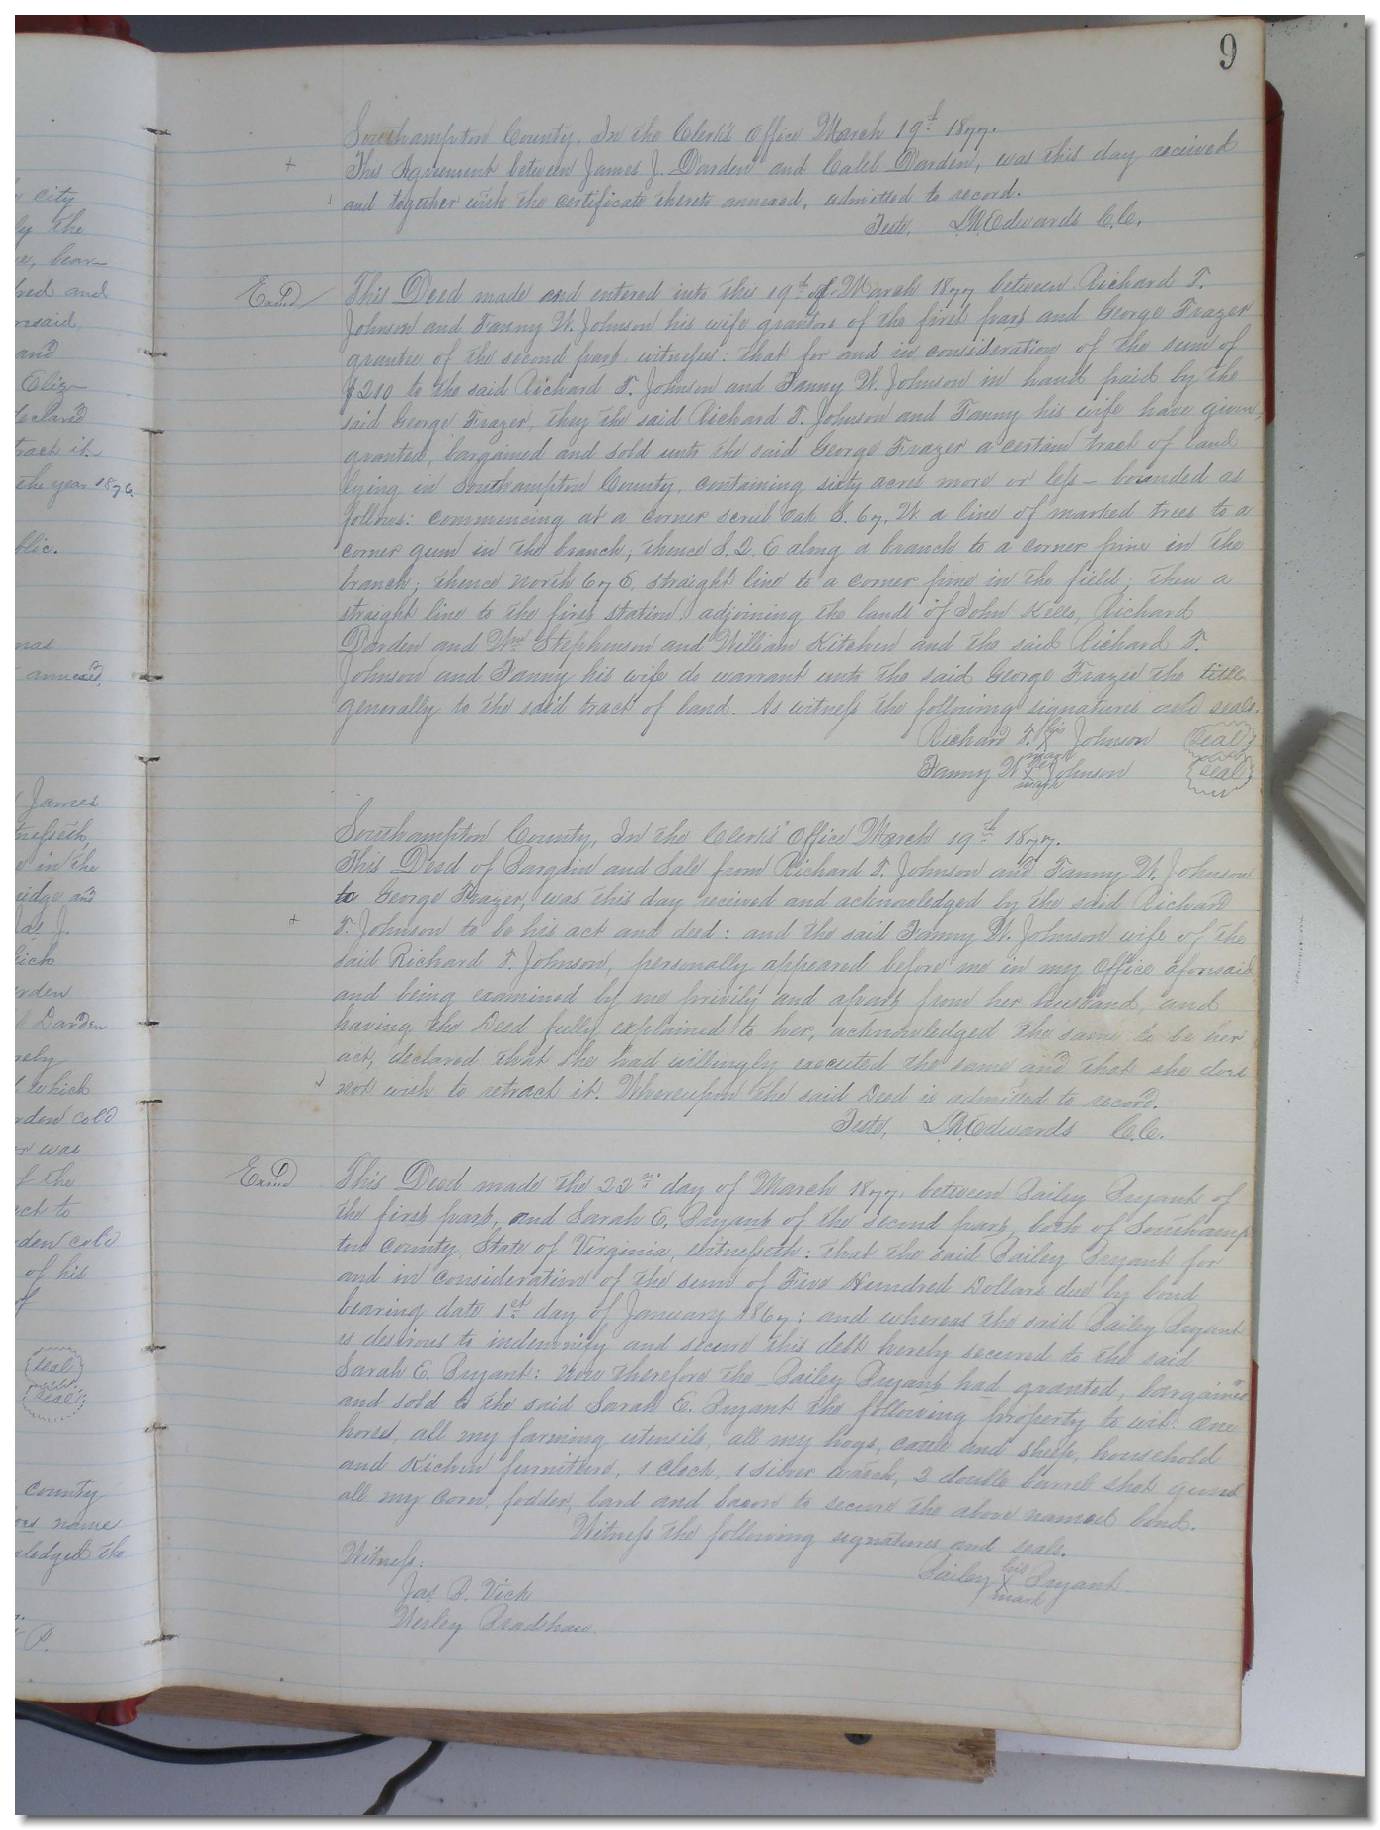 9
Southampton County, In the Clerk's Office March 19th 1877.
This Agreement between James J. Darden and Caleb Darden, was this day received
and together with the certificate thereto annexed, admitted to record.
Teste, Edwards C.C.
Exmd
This Deed made and entered into this 19th of March 1877 between Richard T.
Johnson and Fanny W. Johnson his wife grantors of the first part and George Frazer
grantee of the second part witness: that for and in consideration of the sum of
$210 to the said Richard T. Johnson and Fanny W. Johnson in hand paid by the
said George Frazer, they the said Richard T. Johnson and Fanny his wife have given,
granted, bargained and sold unto the said George Frazer a certain tract of land
lying in Southampton County, containing sixty acres more or less - bounded as
follows: commencing at a corner scrub oak S. 67, W. a line of marked trees to a
corner gum in the branch; thence S. 2. E along a branch to a corner pine in the
branch; thence North 67 E. straight line to a corner pine in the field; then a
straight line to the first station adjoining the lands of John Richard
Darden and Wm Stephenson and William Kitchen and the said Richard T.
Johnson and Fanny his wife do warrant unto the said George Frazer the title
generally to the said tract of land. As witness the following signatures and seals.
Richard T. his X mark Johnson seal
Fanny W. her X mark Johnson seal
Southampton County, In the Clerk's Office March 19th 1877.
This Deed of Bargain and Sale from Richard T. Johnson and Fanny W. Johnson
to George Frazer, was this day received and acknowledged by the said Richard
T. Johnson to be his act and deed: and the said Fanny W. Johnson wife of the
said Richard T. Johnson, personally appeared before me in my office aforesaid
and being examined by me privily and apart from her husband, and
having the Deed fully explained to her, acknowledged the same to be her
act, declared that she had willingly executed the same and that she does
not wish to retract it. Whereupon the said Deed is admitted to record.
Teste, Edwards C.C.
Exmd
This Deed made the 22nd day of March 1877, between Bailey Bryant of
the first part, and Sarah E. Bryant of the second part, both of Southamp
ton County, State of Virginia, witnesseth: that the said Bailey Bryant for
and in consideration of the sum of Five Hundred Dollars due by bond
bearing date 1st day of January 1867: and whereas the said Bailey Bryant
is desirous to indemnify and secure this debt hereby secured to the said
Sarah E. Bryant: Now therefore the Bailey Bryant had granted, bargained
and sold to the said Sarah E. Bryant the following property to wit: one
horse, all my farming utensils, all my hogs, cattle and sheep, household
and Kichen furniture, 1 clock, 1 silver watch, 2 double barrel shot guns
all my corn, fodder, lard and bacon to secure the above named bond.
Witness the following signatures and seals.
Witness: Bailey his X mark Bryant
Jas. B. Vick
Wesley Bradshaw
city
the
bear
and
and
Eliz
declared
it
the year 1876.
annexed,
James
in the
and
J.
Darden
which
cold
was
the
to
cold
of his
seal
seal
county
name
the
P.